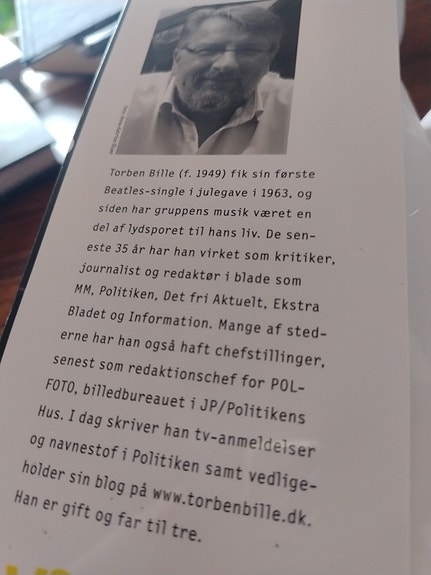 Torben Bille (f. 1949) fik sin første
Beatles-single i julegave i 1963, og
siden har gruppens musik været en
del af lydsporet til hans liv. De sen-
este 35 år har han virket som kritiker,
journalist og redaktør i blade som
MM, Politiken, Det fri Aktuelt, Ekstra
Bladet og Information. Mange af sted-
erne har han også haft chefstillinger,
senest som redaktionschef for POL-
FOTO, billedbureauet i JP/Politikens
Hus. I dag skriver han tv-anmeldelser
og navnestof i Politiken samt vedlige-
holder sin blog på www.torbenbille.dk.
Han er gift og far til tre.